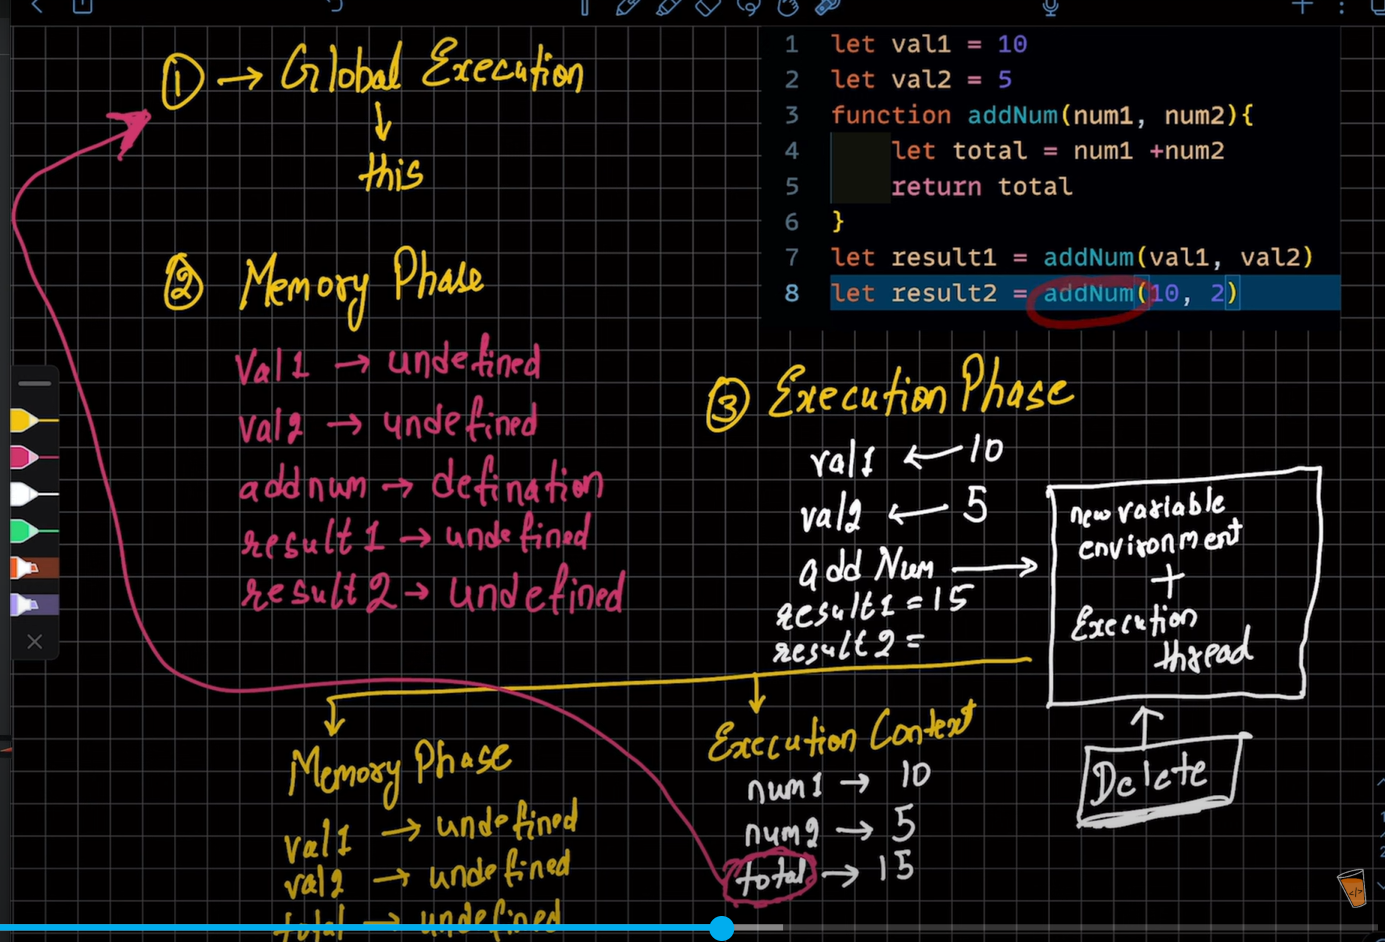 ① → Global Execution
↓
this
② Memory Phase
val1 → undefined
val2 → undefined
addnum → defination
result1 → undefined
result2 → undefined
1 let val1 = 10
2 let val2 = 5
3 function addNum(num1, num2){
4 let total = num1 +num2
5 return total
6 }
7 let result1 = addNum(val1, val2)
8 let result2 = addNum(10, 2)
③ Execution Phase
val1 ← 10
val2 ← 5
add Num →
result1 = 15
result2 =
new variable
environment
+
Execution
thread
Delete
Memory Phase
val1 → undefined
val2 → undefined
total → undefined
Execution Context
num1 → 10
num2 → 5
total → 15